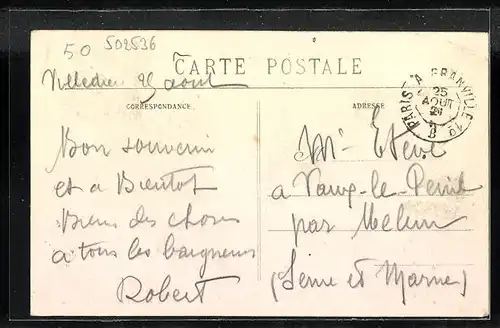 50 502536
CARTE POSTALE
Villedieu 25 août
CORRESPONDANCE
ADRESSE
PARIS A GRANVILLE 1º
25
AOUT
21
Bon souvenir
et a Bientot
Biens des choses
a tous les baigneurs
Robert
Mr Eteve
a Vaux-le-Penil
par Melun
(Seine et Marne)